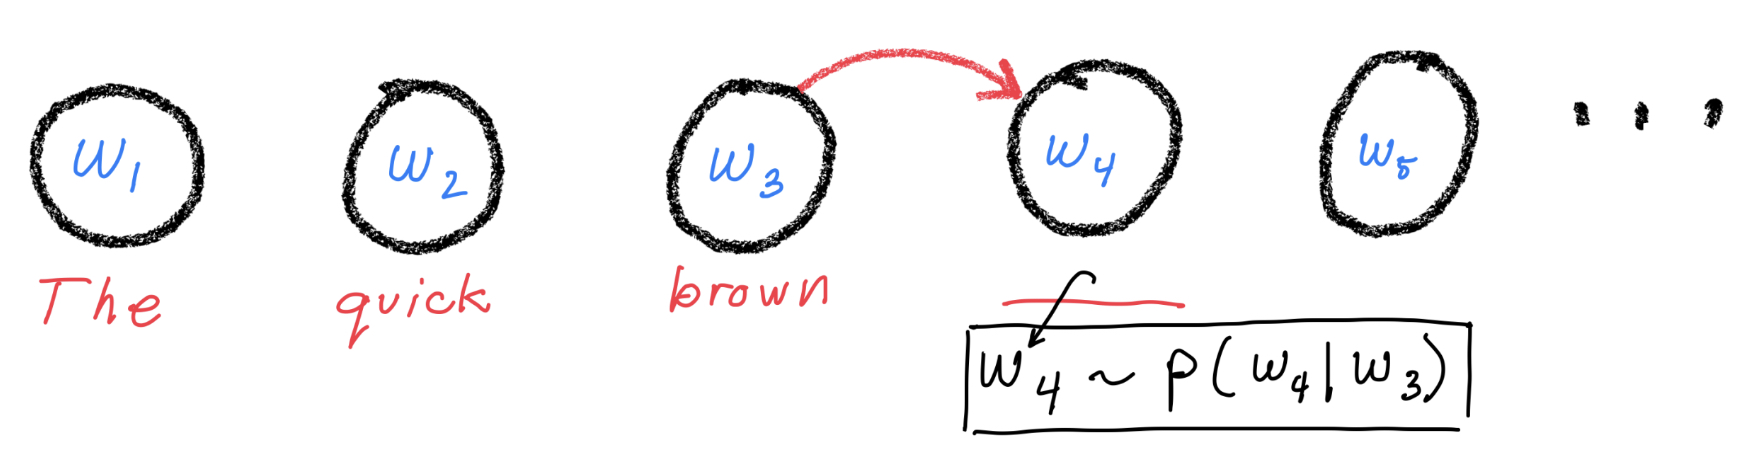 w₁ w₂ w₃ w₄ w₅ ...
The quick brown
w₄ ~ p(w₄|w₃)